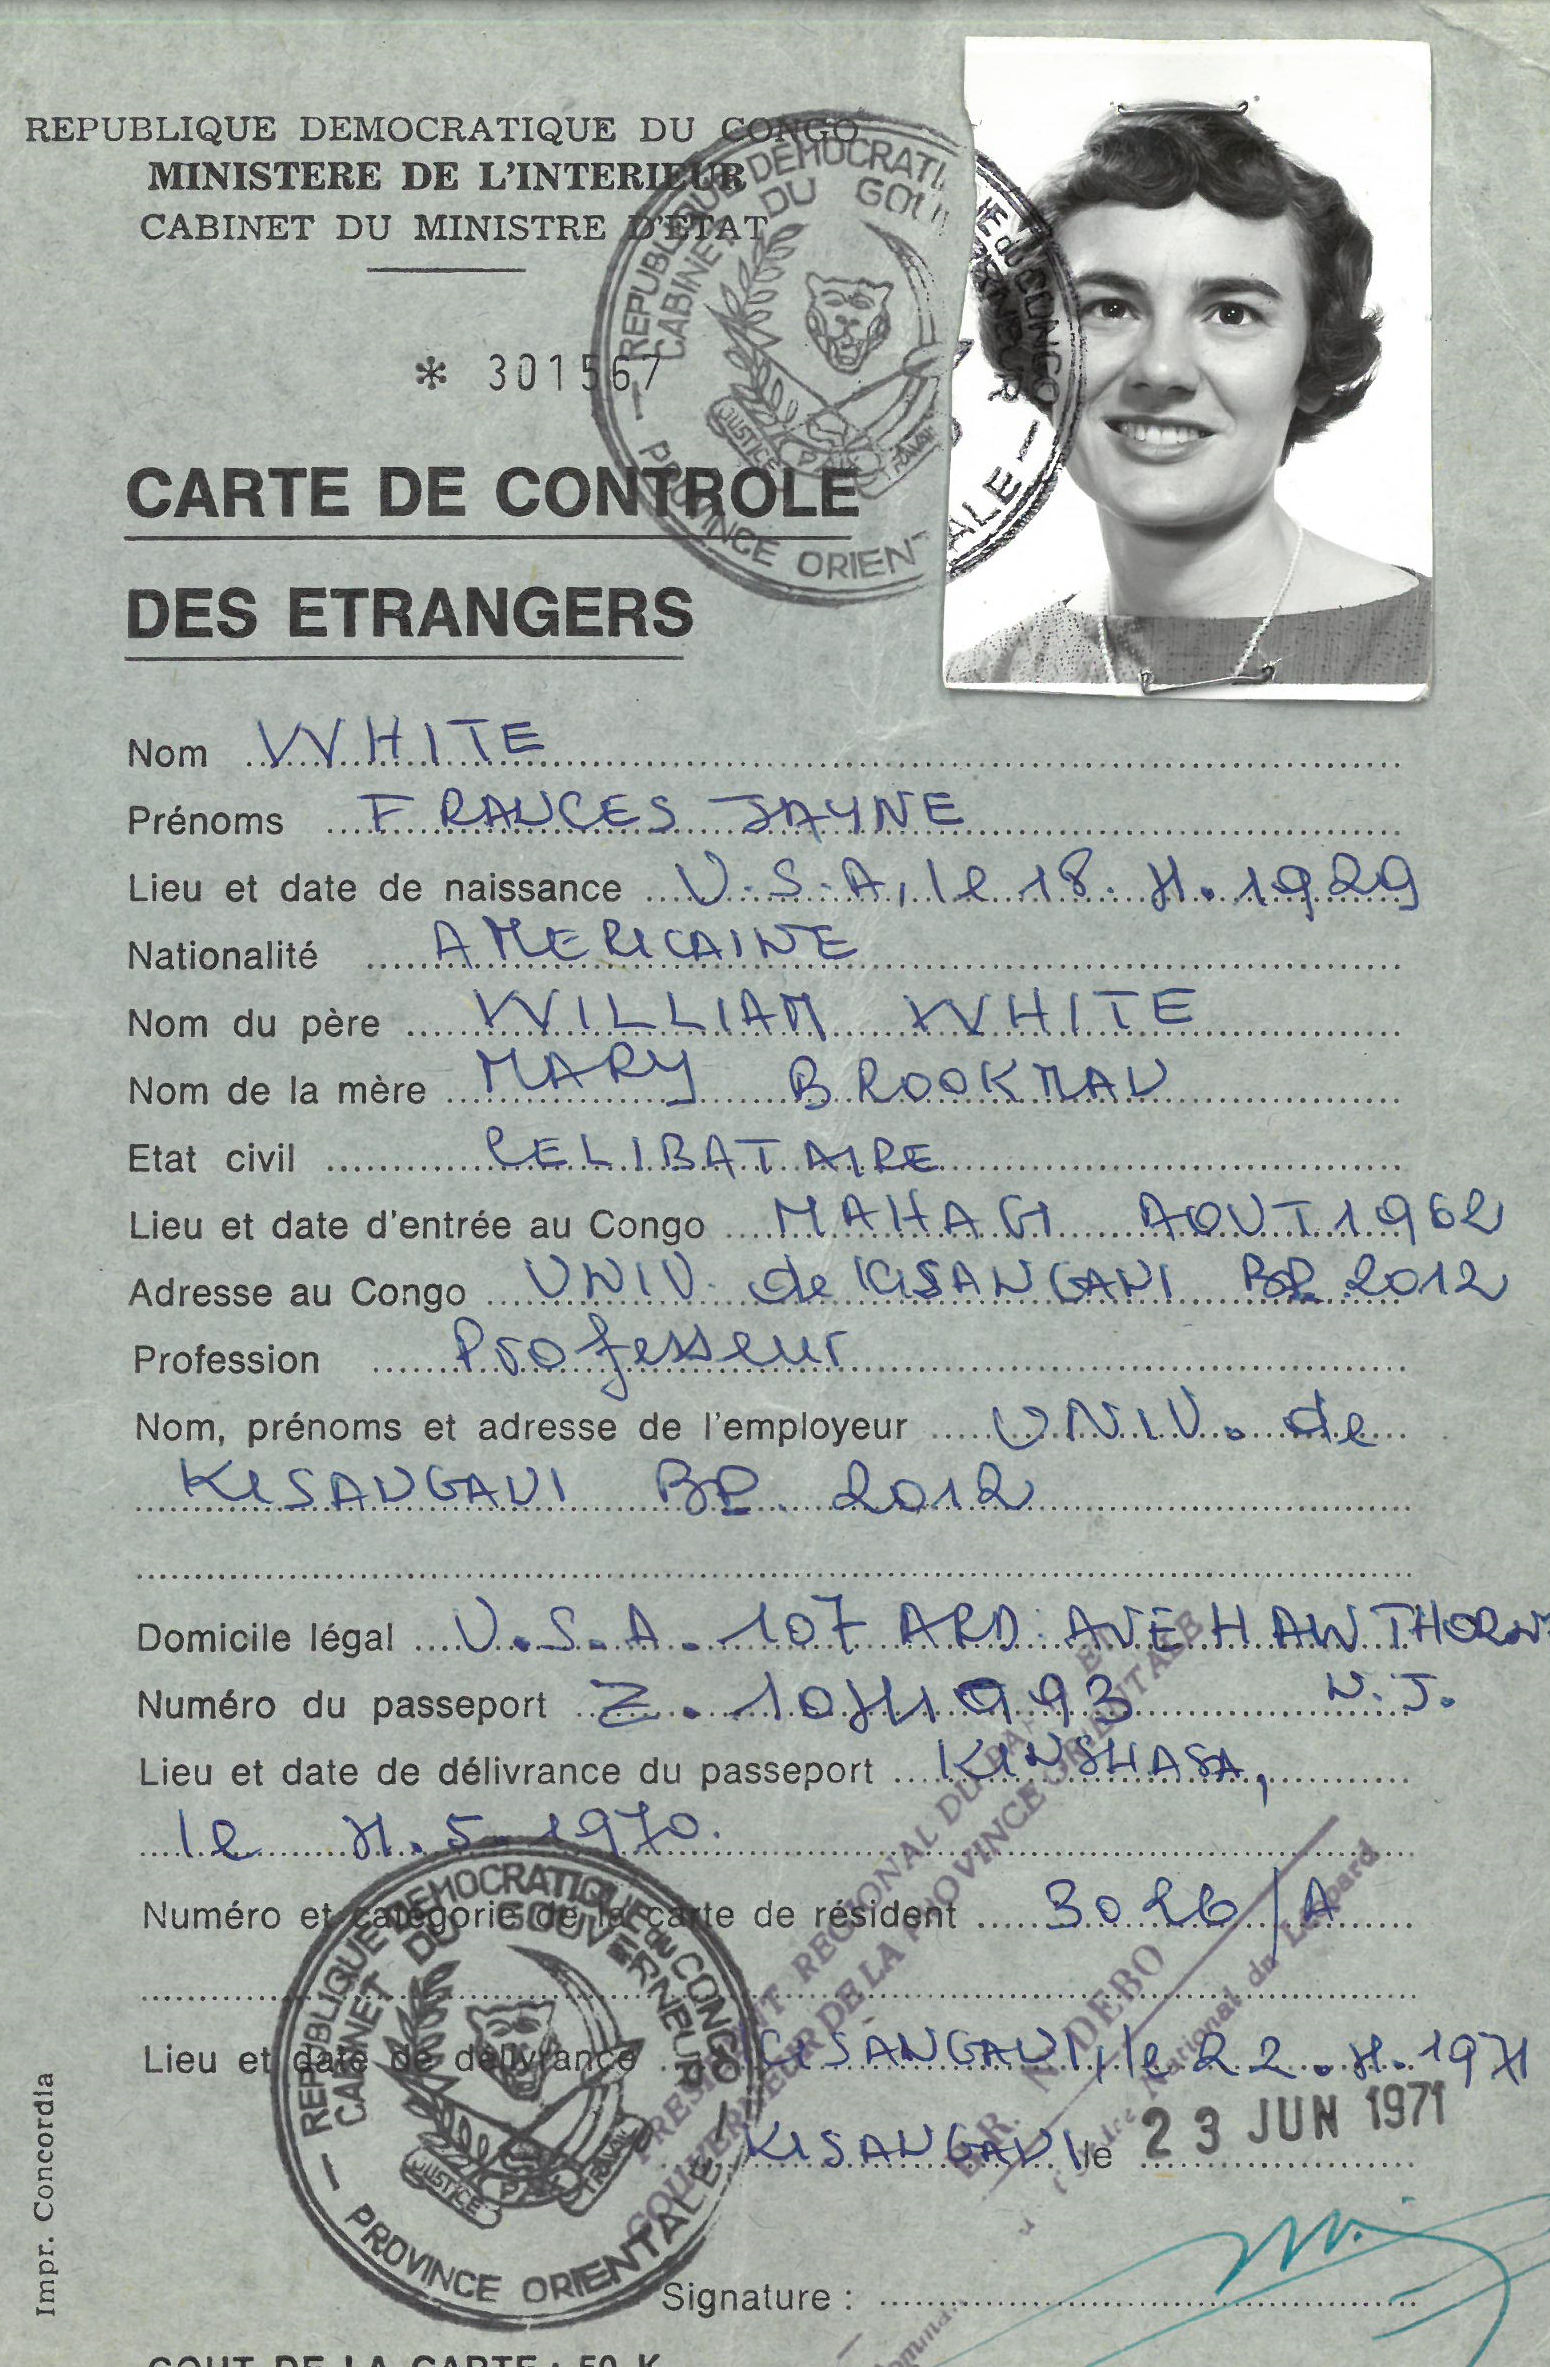 REPUBLIQUE DEMOCRATIQUE DU CONGO
MINISTERE DE L'INTERIEUR
CABINET DU MINISTRE D'ETAT
* 301567
CARTE DE CONTROLE
DES ETRANGERS
REPUBLIQUE DEMOCRATI
CABINET DU GOU
JUSTICE PAIX TRAVAIL
PROVINCE ORIENT
IE du CONGO
RNEUR
ALE —
Nom WHITE
Prénoms FRANCES JAYNE
Lieu et date de naissance U.S.A, le 18. 4. 1929
Nationalité AMERICAINE
Nom du père WILLIAM WHITE
Nom de la mère MARY BROOKMAN
Etat civil CELIBATAIRE
Lieu et date d'entrée au Congo MAHAGI AOUT 1962
Adresse au Congo UNIV. de KISANGANI BP. 2012
Profession Professeur
Nom, prénoms et adresse de l'employeur UNIV. de
KISANGANI BP. 2012
Domicile légal U.S.A. 107 ARD. AVE HAWTHORN
Numéro du passeport Z. 1041993 N.J.
Lieu et date de délivrance du passeport KINSHASA,
le 4. 5. 1970.
Numéro et catégorie de la carte de résident 3026/A
Lieu et date de délivrance KISANGANI, le 22. 4. 1971
KISANGANI le 23 JUN 1971
REPUBLIQUE DEMOCRATIQUE du CONGO
CABINET DU GOUVERNEUR
JUSTICE PAIX TRAVAIL
— PROVINCE ORIENTALE —
PRESIDENT REGIONAL DU
GOUVERNEUR DE LA PROVINCE ORIENTALE
NDEBO
National du Léopard
Signature :
Impr. Concordia
COUT DE LA CARTE : 50 K